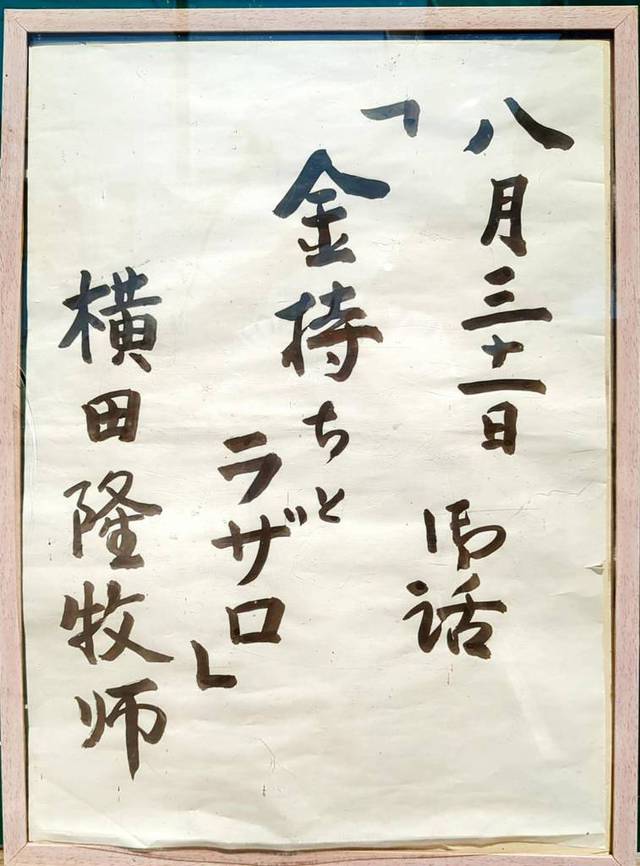 八月三十一日 御話
「金持ちと
ラザロ」
横田隆牧师